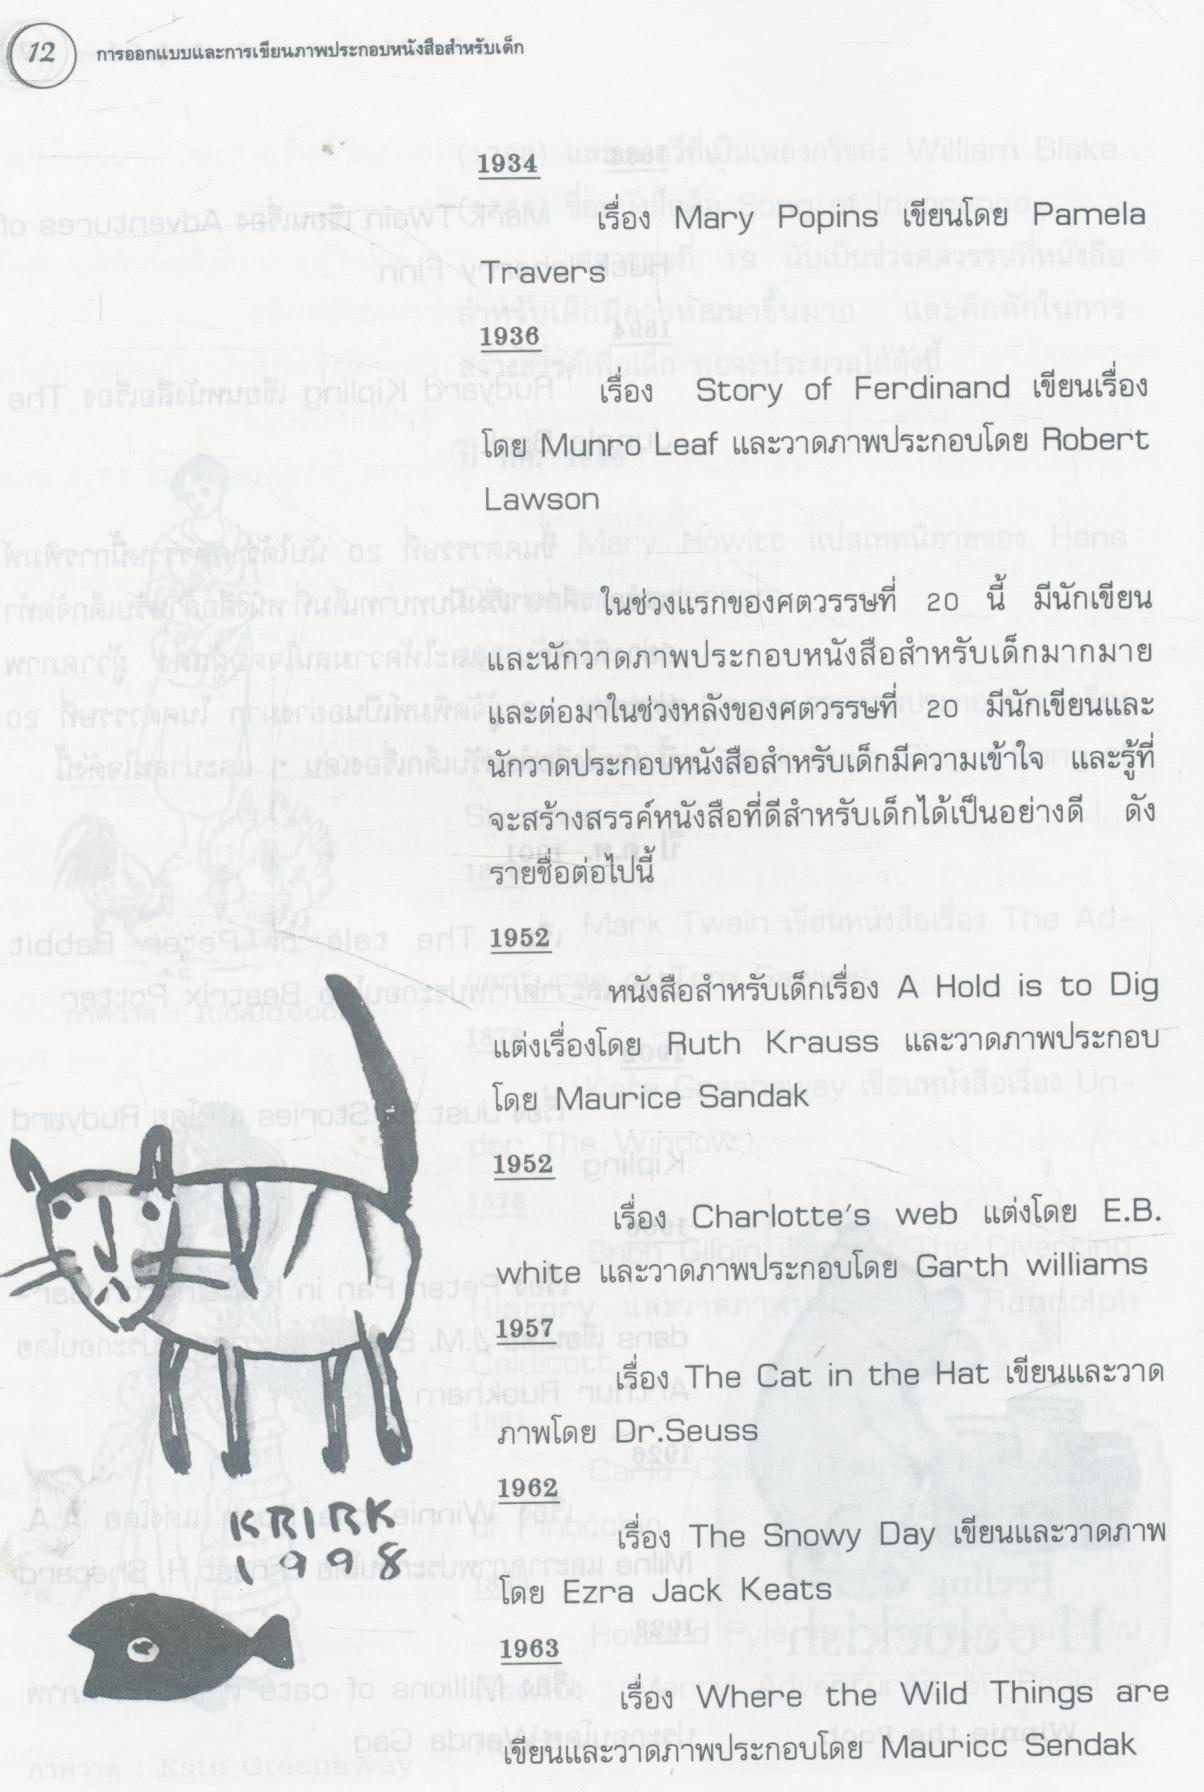 12
การออกแบบและการเขียนภาพประกอบหนังสือสำหรับเด็ก
1934
เรื่อง Mary Popins เขียนโดย Pamela
Travers
1936
เรื่อง Story of Ferdinand เขียนเรื่อง
โดย Munro Leaf และวาดภาพประกอบโดย Robert
Lawson
ในช่วงแรกของศตวรรษที่ 20 นี้ มีนักเขียน
และนักวาดภาพประกอบหนังสือสำหรับเด็กมากมาย
และต่อมาในช่วงหลังของศตวรรษที่ 20 มีนักเขียนและ
นักวาดประกอบหนังสือสำหรับเด็กมีความเข้าใจ และรู้ที่
จะสร้างสรรค์หนังสือที่ดีสำหรับเด็กได้เป็นอย่างดี ดัง
รายชื่อต่อไปนี้
1952
หนังสือสำหรับเด็กเรื่อง A Hold is to Dig
แต่งเรื่องโดย Ruth Krauss และวาดภาพประกอบ
โดย Maurice Sandak
1952
เรื่อง Charlotte's web แต่งโดย E.B.
white และวาดภาพประกอบโดย Garth williams
1957
เรื่อง The Cat in the Hat เขียนและวาด
ภาพโดย Dr.Seuss
1962
เรื่อง The Snowy Day เขียนและวาดภาพ
โดย Ezra Jack Keats
1963
เรื่อง Where the Wild Things are
เขียนและวาดภาพประกอบโดย Mauricc Sendak
KRIRK
1998